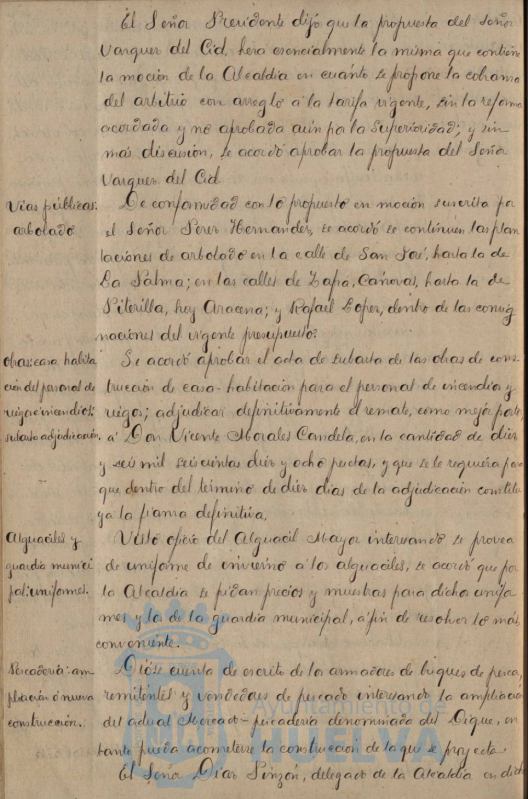 El Señor Presidente dijo que la propuesta del Señor
Varguez del Cid, hera esencialmente la misma que contiene
la moción de la Alcaldia en cuanto se propone la cobranza
del arbitrio con arreglo a la tarifa vigente, sin la reforma
acordada y no aprobada aún pa la Superioridad; y sin
más discusion, se acordó aprobar la propuesta del Señor
Varguez del Cid
Vias públicas:
arbolado
De conformidad con lo propuesto en moción suscrita por
el Señor Perez Hernandez, se acordó se continuen las plan
taciones de arbolado en la calle de San José, hasta la de
La Palma; en las calles de Zapa, Cánovas, hasta la de
Piterilla, hoy Aracena; y Rafael Lopez, dentro de las consig
naciones del vigente presupuesto.
Obras: casa habita
ción del personal de
riego e incendios:
subasta adjudicación.
Se acordó aprobar el acta de subasta de las obras de cons-
trucción de casa-habitación para el personal de incendios y
riegos; adjudicar definitivamente el remate, como mejor postor
a Don Vicente Morales Candela, en la cantidad de diez
y seis mil seiscientas diez y ocho pesetas, y que se le requiera para
que dentro del termino de diez dias de la adjudicación constitu
ya la fianza definitiva.
Alguaciles y
guardia munici
pal: uniformes.
Visto oficio del Alguacil Mayor interesando se provea
de uniforme de invierno a los alguaciles, se acordó que por
la Alcaldia se pidan precios y muestras para dichos unifor
mes y los de la guardia municipal, a fin de resolver lo más
conveniente.
Pescaderia: am
pliación o nueva
construcción.
Dióse cuenta de escrito de los armadores de buques de pesca,
remitentes y vendedores de pescado interesando la ampliación
del actual Mercado-pescaderia denominada del Dique, en
tanto pueda acometerse la construcción de la que se proyecta.
El Señor Diaz Pinzón, delegado de la Alcaldia en dicho
Ayuntamiento de
HUELVA